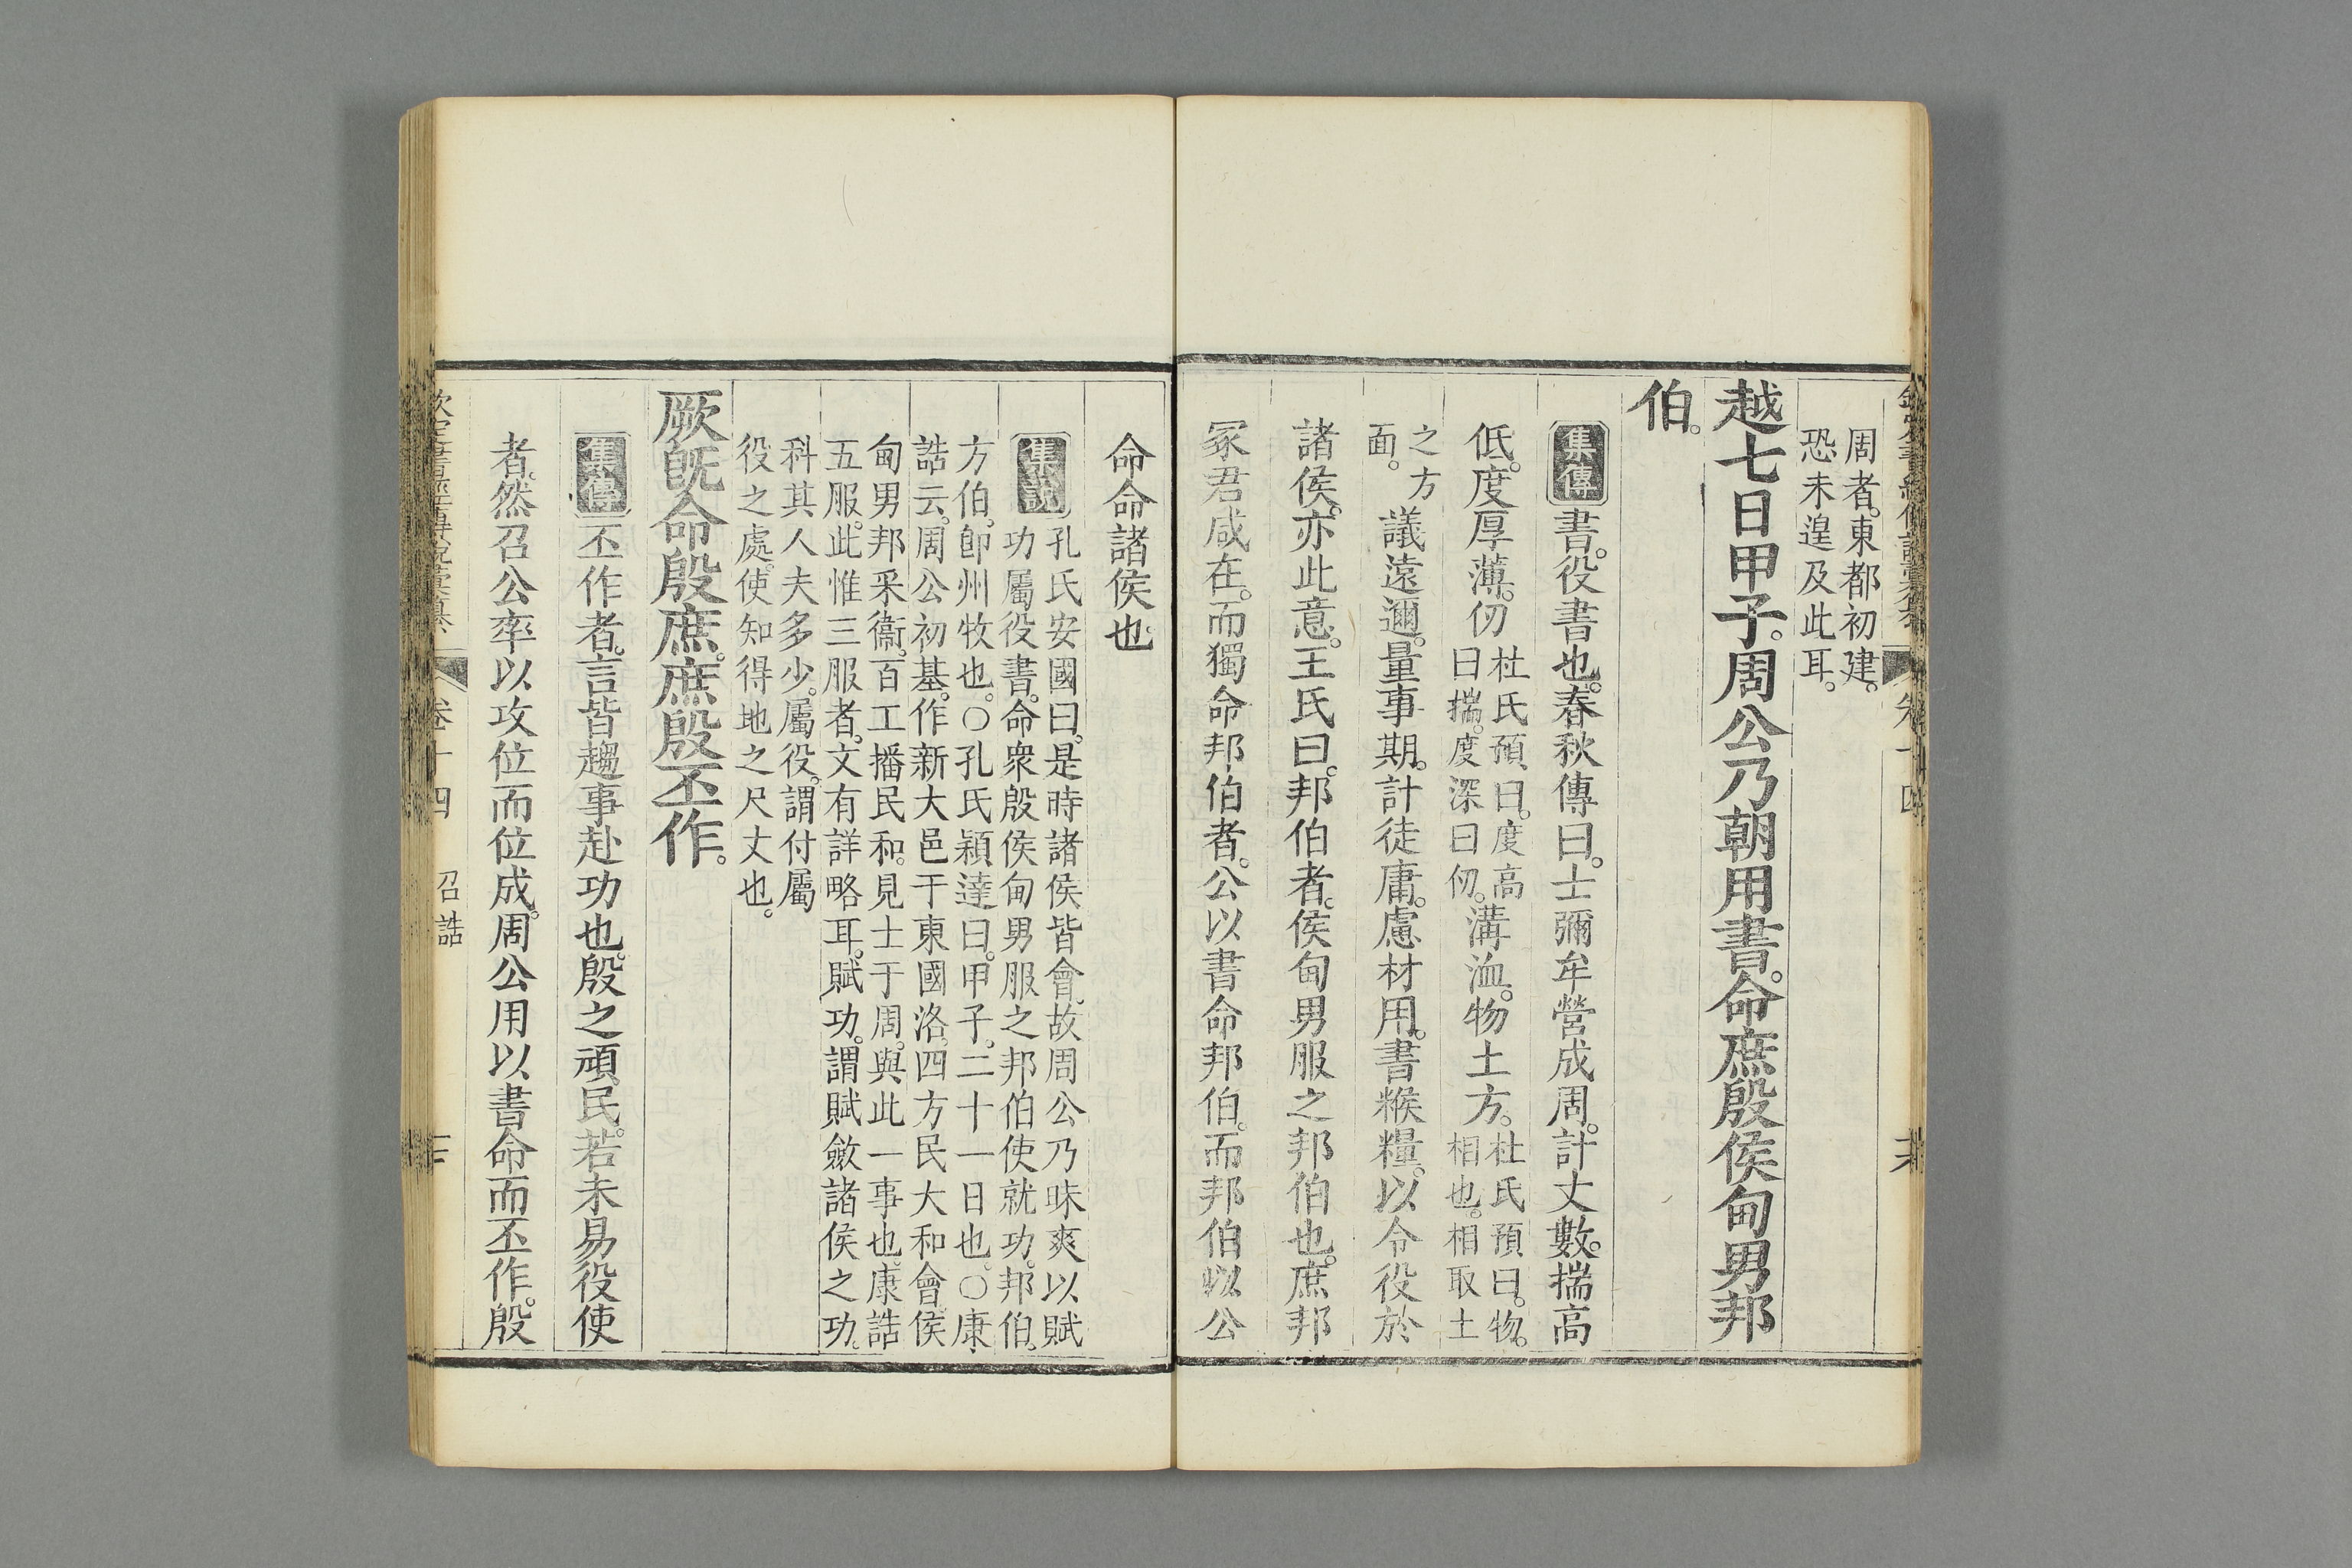 周者。東都初建。
恐未遑及此耳。
越七日甲子。周公乃朝用書。命庶殷侯甸男邦
伯。
集傳 書。役書也。春秋傳曰。士彌牟營成周。計丈數。揣高
低。度厚薄。仞 杜氏預曰。度高曰揣。度深曰仞。 溝洫。物土方。 杜氏預曰。物。相也。相取土
之方面。 議遠邇。量事期。計徒庸。慮材用。書糇糧。以令役於
諸侯。亦此意。王氏曰。邦伯者。侯甸男服之邦伯也。庶邦
冢君咸在。而獨命邦伯者。公以書命邦伯。而邦伯以公
命命諸侯也
集說 孔氏安國曰。是時諸侯皆會。故周公乃昧爽以賦
功屬役書。命衆殷侯甸男服之邦伯使就功。邦伯。
方伯。卽州牧也。○孔氏穎達曰。甲子。二十一日也。○康
誥云。周公初基。作新大邑于東國洛。四方民大和會。侯
甸男邦采衞。百工播民和。見士于周。與此一事也。康誥
五服。此惟三服者。文有詳略耳。賦功。謂賦斂諸侯之功。
科其人夫多少。屬役。謂付屬
役之處。使知得地之尺丈也。
厥旣命殷庶。庶殷丕作。
集傳 丕作者。言皆趨事赴功也。殷之頑民。若未易役使
者。然召公率以攻位而位成。周公用以書命而丕作。殷
卷十四 召誥